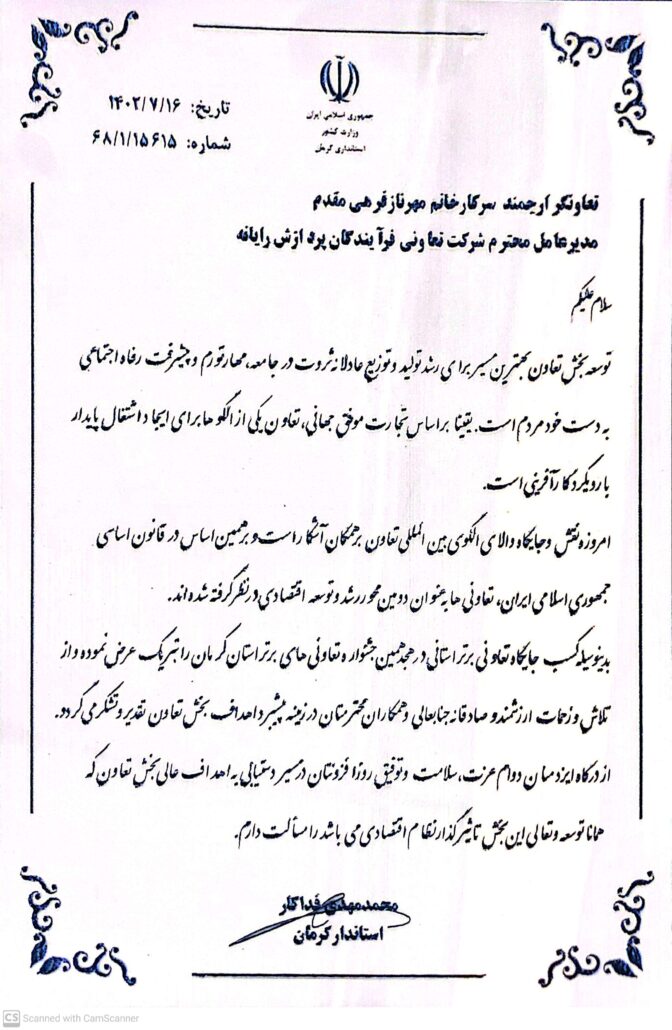 جمهوری اسلامی ایران
وزارت کشور
استانداری کرمان
تاریخ: ۱۴۰۲/۷/۱۶
شماره: ۶۸/۱/۱۵۶۱۵
تعاونگر ارجمند سرکار خانم مهرناز فرهی مقدم
مدیرعامل محترم شرکت تعاونی فرآیندگان پردازش رایانه
سلام علیکم
توسعه بخش تعاون بهترین مسیر برای رشد تولید و توزیع عادلانه ثروت در جامعه، مهار تورم و پیشرفت رفاه اجتماعی
به دست خود مردم است. یقینا بر اساس تجارت موفق جهانی، تعاون یکی از الگوها برای ایجاد اشتغال پایدار
با رویکرد کارآفرینی است.
امروزه نقش و جایگاه والای الگوی بین المللی تعاون بر همگان آشکار است و بر همین اساس در قانون اساسی
جمهوری اسلامی ایران، تعاونی ها به عنوان دومین محور رشد و توسعه اقتصادی در نظر گرفته شده اند.
بدینوسیله کسب جایگاه تعاونی برتر استانی در هجدهمین جشنواره تعاونی های برتر استان کرمان را تبریک عرض نموده و از
تلاش و زحمات ارزشمند و صادقانه جنابعالی و همکاران محترمتان در زمینه پیشبرد اهداف بخش تعاون تقدیر و تشکر می گردد.
از درگاه ایزد منان دوام عزت، سلامت و توفیق روزافزونتان در مسیر دستیابی به اهداف عالی بخش تعاون که
همانا توسعه و تعالی این بخش تاثیرگذار نظام اقتصادی می باشد را مسألت دارم.
محمدمهدی فداکار
استاندار کرمان
CS Scanned with CamScanner